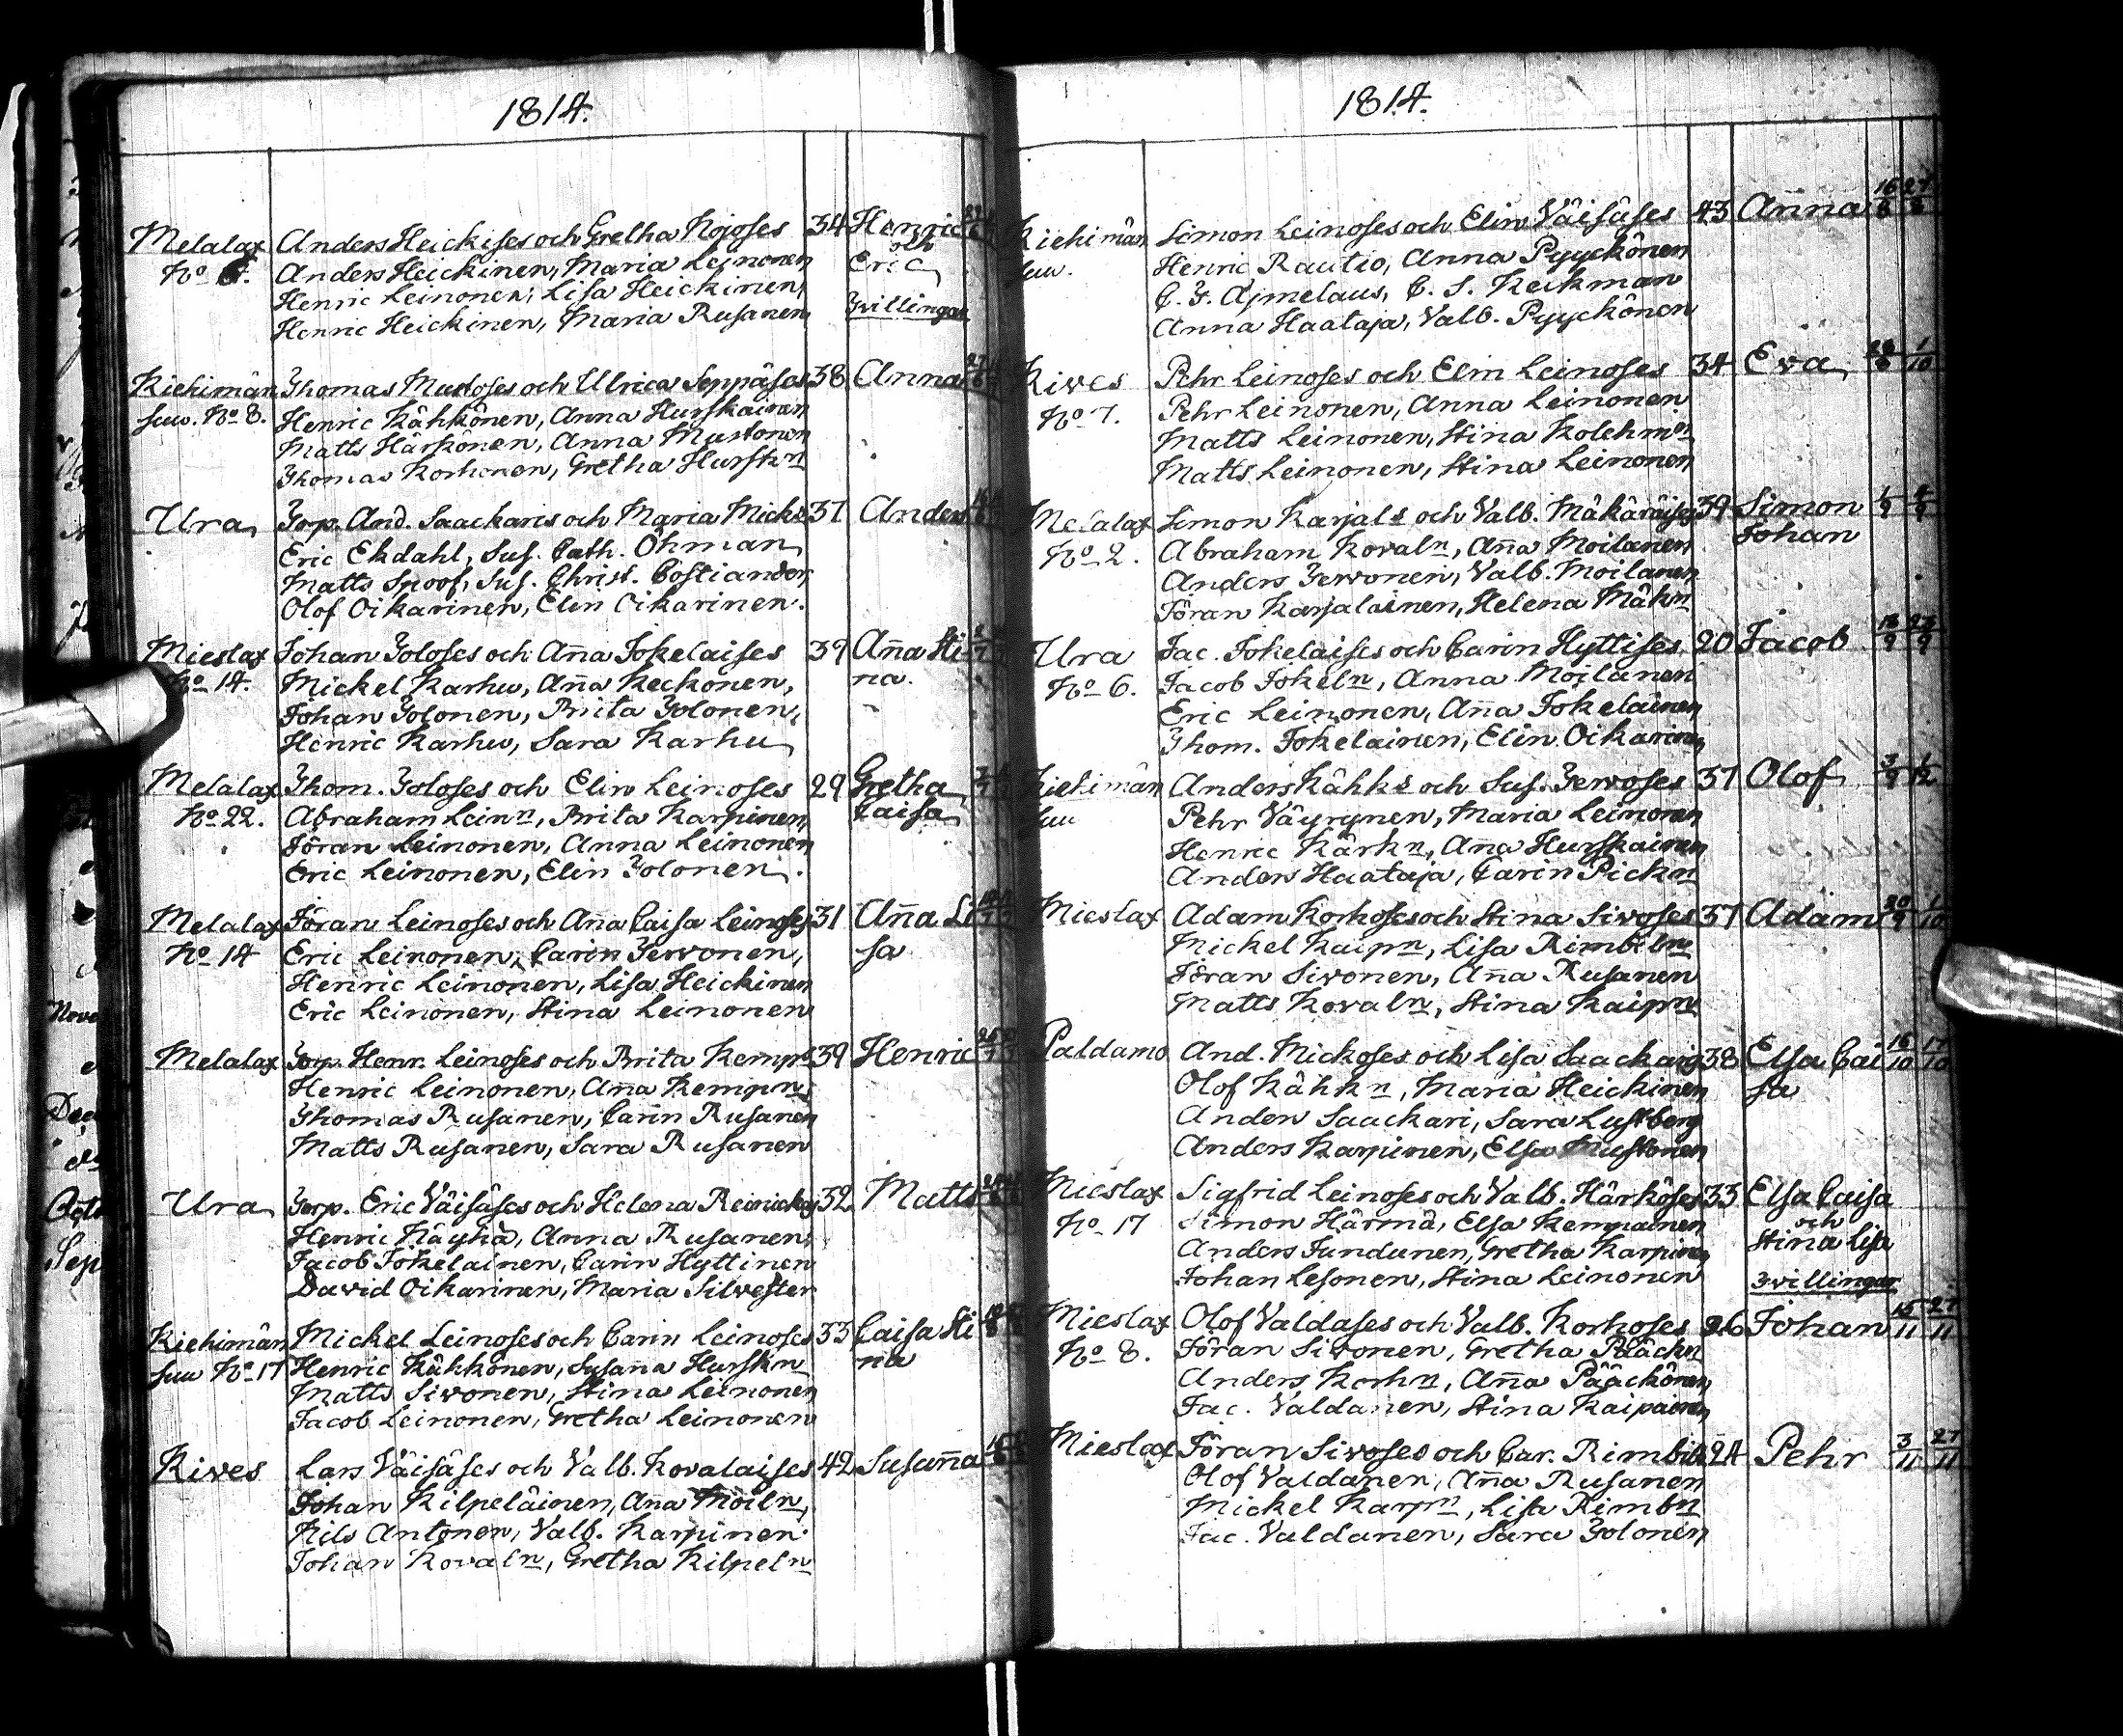 1814.
Melalax Anders Heickises och Gretha Kojoses 34 Henric
No Anders Heickinen, Maria Leinonen och Eric
Henric Leinonen, Lisa Heickinen,
Henric Heickinen, Maria Rusanen Tvillingar
Kiehimän Thomas Mustoses och Ulrica Seppäses 38 Anna
suu. No 8. Henric Kähkönen, Anna Hurskainen
Matts Härkönen, Anna Mustonen
Thomas Korhonen, Gretha Hurskn
Ura Torp. And. Saackaris och Maria Micks 37 Anders
Eric Ekdahl, Sus. Cath. Öhman
Matts Snoof, Sus. Christ. Costiander
Olof Oikarinen, Elin Oikarinen.
Mieslax Johan Toloses och Aña Jokelaises 39 Aña Sti
No 14. Mickel Karhu, Aña Keckonen, na.
Johan Tolonen, Brita Tolonen,
Henric Karhu, Sara Karhu
Melalax Thom. Toloses och Elin Leinoses 29 Gretha
No 22. Abraham Leinn, Brita Karpinen, Caisa
Jöran Leinonen, Anna Leinonen
Eric Leinonen, Elin Tolonen.
Melalax Jöran Leinoses och Aña Caisa Leinoses 31 Aña Li
No 14 Eric Leinonen, Carin Terwonen, sa
Henric Leinonen, Lisa Heickinen
Eric Leinonen, Stina Leinonen
Melalax Torp. Henr. Leinoses och Brita Kemps 39 Henric
Henric Leinonen, Aña Kempn
Thomas Rusanen, Carin Rusanen
Matts Rusanen, Sara Rusanen
Ura Torp. Eric Väisäses och Helena Reinickes 32 Matts
Henric Käyhä, Anna Rusanen,
Jacob Jokelainen, Carin Hyttinen
David Oikarinen, Maria Silvester
Kiehimän Mickel Leinoses och Carin Leinoses 33 Caisa Sti
suu No 17 Henric Kähkönen, Susaña Hurskn na
Matts Sivonen, Stina Leinonen
Jacob Leinonen, Gretha Leinonen
Kives Lars Väisäses och Valb. Kovalaises 42 Susaña
Johan Kilpeläinen, Aña Moiln,
Nils Antonen, Valb. Karpinen
Johan Kovaln, Gretha Kilpeln
1814.
Kiehimän Simon Leinoses och Elin Väisäses 43 Anna 16/8 27/8
suu. Henric Rautio, Anna Pyyckönen
C. F. Ajmelaus, C. S. Keckman
Anna Haataja, Valb. Pyyckönen
Kives Pehr Leinoses och Elin Leinoses 34 Eva 1/10
No 7. Pehr Leinonen, Anna Leinonen
Matts Leinonen, Stina Kolehmn
Matts Leinonen, Stina Leinonen
Melalax Simon Karjals och Valb. Mäkäräises 39 Simon 1/9
No 2. Abraham Kovaln, Aña Moilanen Johan
Anders Terwonen, Valb. Moilanen
Jöran Karjalainen, Helena Mäkn
Ura Jac. Jokelaises och Carin Hyttises 20 Jacob
No 6. Jacob Jokeln, Anna Moilanen
Eric Leinonen, Aña Jokelainen
Thom. Jokelainen, Elin Oikarinen
Kiehimän Anders Kähks och Sus. Terwoses 37 Olof 3/9
suu Pehr Väyrynen, Maria Leinonen
Henric Kärkn, Aña Hurskainen
Anders Haataja, Carin Pickn
Mieslax Adam Korhoses och Stina Sivoses 37 Adam 20/9 1/10
Mickel Kaipn, Lisa Rimbiln
Jöran Sivonen, Aña Rusanen
Matts Kovaln, Stina Kaipn
Paldamo And. Mickoses och Lisa Saackaris 38 Elsa Cai 16/10 17/10
Olof Kähkn, Maria Heickinen sa
Anders Saackari, Sara Lustberg
Anders Karpinen, Elsa Mustonen
Mieslax Sigfrid Leinoses och Valb. Härköses 33 Elsa Caisa
No 17 Simon Härmä, Elsa Kemnainen och
Anders Jundunen, Gretha Karpinen Stina Lisa
Johan Lesonen, Stina Leinonen Tvillingar
Mieslax Olof Valdases och Valb. Korhoses 26 Johan 15/11 27/11
No 8. Jöran Sivonen, Gretha Pääckn
Anders Korhn, Aña Pääckönen
Jac. Valdanen, Stina Kaipainen
Mieslax Jöran Sivoses och Car. Rimbils 24 Pehr 3/11 27/11
Olof Valdanen, Aña Rusanen
Mickel Karpn, Lisa Rimbn
Jac. Valdanen, Sara Tolonen